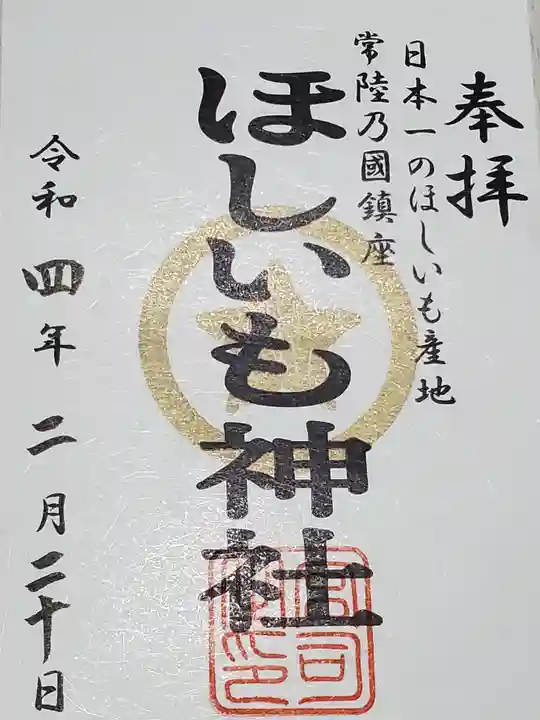 奉拝
日本一のほしいも産地
常陸乃國鎮座
ほしいも神社
令和四年二月二十日